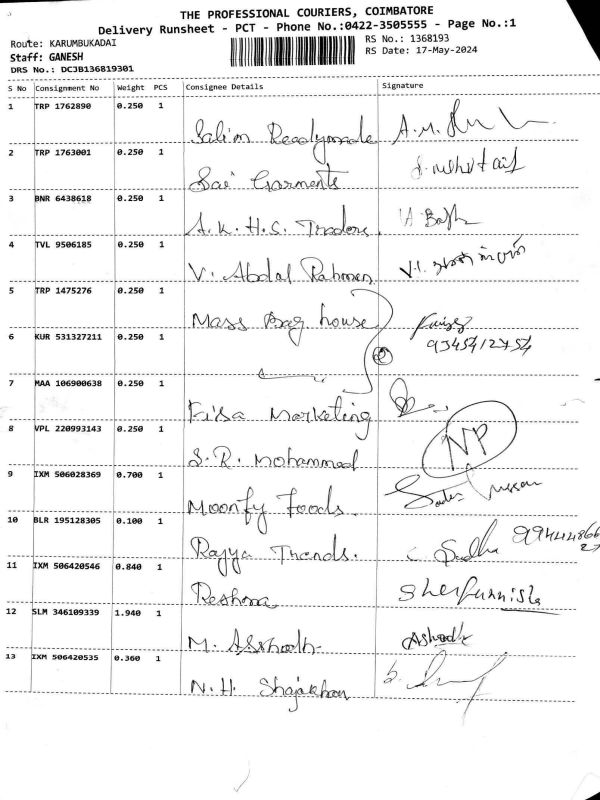 THE PROFESSIONAL COURIERS, COIMBATORE
Delivery Runsheet - PCT - Phone No.:0422-3505555 - Page No.:1
Route: KARUMBUKADAI
RS No.: 1368193
Staff: GANESH
RS Date: 17-May-2024
DRS No.: DCJB136819301
S No Consignment No Weight PCS Consignee Details Signature
1 TRP 1762890 0.250 1
Salim Readymade A.M.
2 TRP 1763001 0.250 1
Sai Garments
3 BNR 6438618 0.250 1
A.K.H.S. Traders.
4 TVL 9506185 0.250 1
V. Abdal Rahman V.I.
5 TRP 1475276 0.250 1
Mass Bag house
6 KUR 531327211 0.250 1
② 9345412754
7 MAA 106900638 0.250 1
Fisa Marketing
8 VPL 220993143 0.250 1
S.R. Mohammed NP
9 IXM 506028369 0.700 1
Moonfy Foods.
10 BLR 195128305 0.100 1
Rajya Trends. Sadha
11 IXM 506420546 0.840 1
Reshma
12 SLM 346109339 1.940 1
M. Ashoth
13 IXM 506420535 0.360 1
N.H. Shajakhan